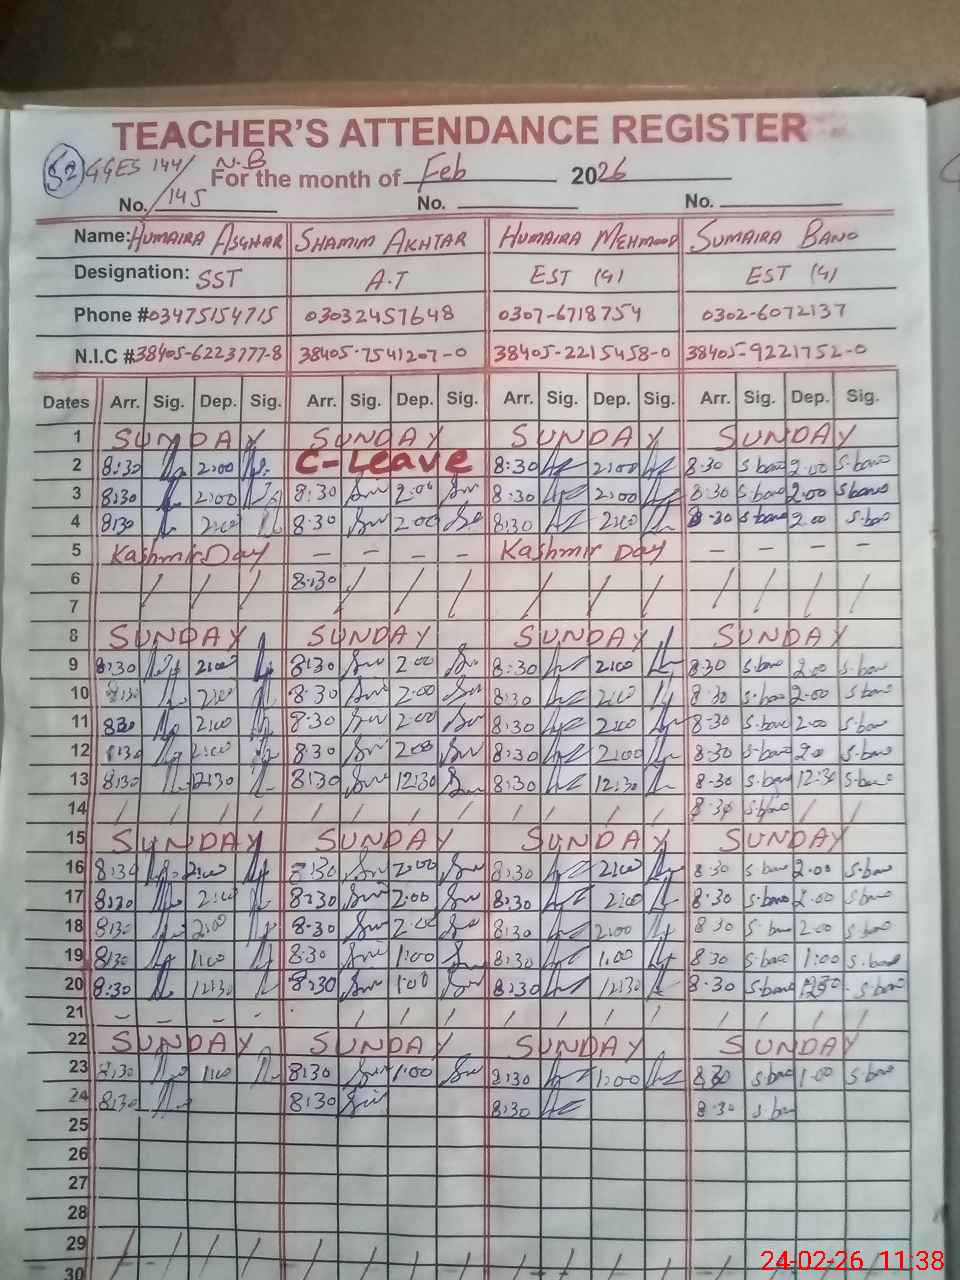 TEACHER'S ATTENDANCE REGISTER
52 GGES 144/145 N.B
For the month of Feb 2026
No. No. No.
Name: HUMAIRA ASGHAR SHAMIM AKHTAR HUMAIRA MEHMOOD SUMAIRA BANO
Designation: SST A.T EST (4) EST (4)
Phone # 03475154715 03032457648 0307-6718754 0302-6072137
N.I.C # 38405-6223777-8 38405-7541207-0 38405-2215458-0 38405-9221752-0
Dates Arr. Sig. Dep. Sig. Arr. Sig. Dep. Sig. Arr. Sig. Dep. Sig. Arr. Sig. Dep. Sig.
1 SUNDAY SUNDAY SUNDAY SUNDAY
2 8:30 2:00 C-Leave 8:30 2:00 8:30 s.bano 2.00 s.bano
3 8:30 2:00 8:30 2:00 8:30 2:00 8:30 s.bano 2.00 s bano
4 8:30 2:00 8:30 2:00 8:30 2:00 8-30 s.bano 2.00 s.bano
5 Kashmir Day - - - - Kashmir Day - - - -
6 / / / 8:30 / / / / / / / / / / /
7
8 SUNDAY SUNDAY SUNDAY SUNDAY
9 8:30 2:00 8:30 2:00 8:30 2:00 8:30 s.bano 2.00 s.bano
10 8:30 2:00 8:30 2:00 8:30 2:00 8:30 s.bano 2.00 s.bano
11 8:30 2:00 8:30 2:00 8:30 2:00 8-30 s.bano 2.00 s.bano
12 8:30 2:00 8:30 2:00 8:30 2:00 8-30 s.bano 2.00 s.bano
13 8:30 12:30 8:30 12:30 8:30 12:30 8-30 s.bano 12:30 s.bano
14 / / / / / / / / / / / / 8:30 s.bano / /
15 SUNDAY SUNDAY SUNDAY SUNDAY
16 8:30 2:00 8:30 2:00 8:30 2:00 8:30 s bano 2.00 s.bano
17 8:30 2:00 8:30 2:00 8:30 2:00 8:30 s.bano 2.00 s.bano
18 8:30 2:00 8:30 2:00 8:30 2:00 8 30 s.bano 2.00 s.bano
19 8:30 1:00 8:30 1:00 8:30 1:00 8 30 s.bano 1:00 s.bano
20 8:30 12:30 8:30 1:00 8:30 12:30 8-30 s.bano s.bano
21 - - - - / / / / / / / / / / /
22 SUNDAY SUNDAY SUNDAY SUNDAY
23 8:30 1:00 8:30 1:00 8:30 1:00 8:30 s.bano 1.00 s.bano
24 8:30 8:30 8:30 8:30 s.ban
25
26
27
28
29 / / / / / / / / / / / / / / / /
30
24-02-26 11:38